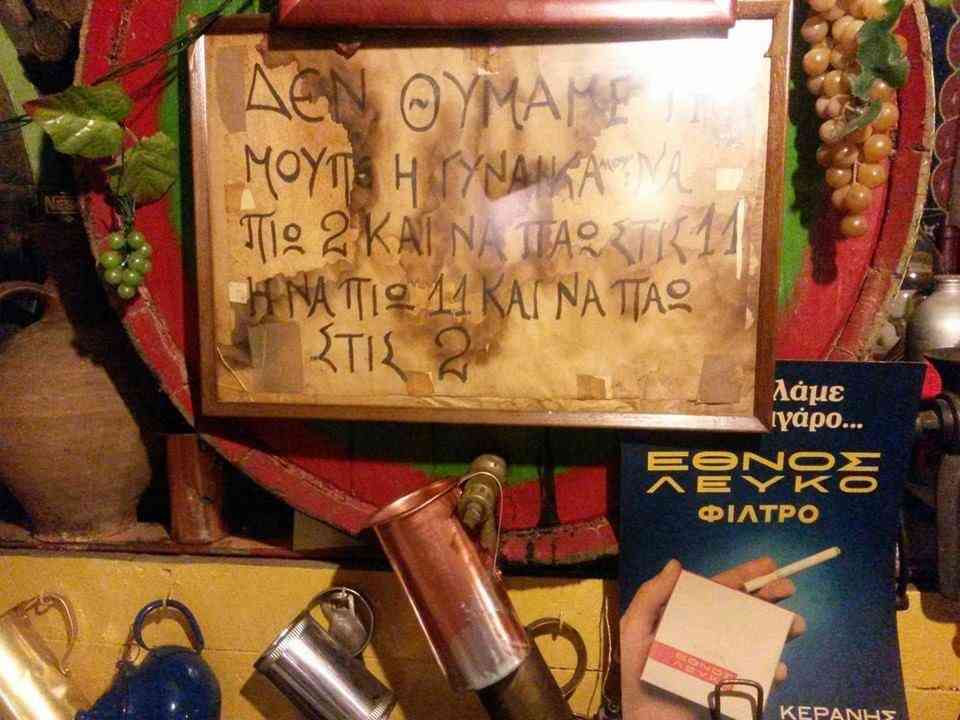 ΔΕΝ ΘΥΜΑΜΕ
ΜΟΥΠΕ Η ΓΥΝΑΙΚΑ ΜΟΥ ΝΑ
ΠΙΩ 2 ΚΑΙ ΝΑ ΠΑΩ ΣΤΙΣ 11
Η ΝΑ ΠΙΩ 11 ΚΑΙ ΝΑ ΠΑΩ
ΣΤΙΣ 2
ΕΘΝΟΣ
ΛΕΥΚΟ
ΦΙΛΤΡΟ
ΕΘΝΟΣ
ΚΕΡΑΝΗΣ